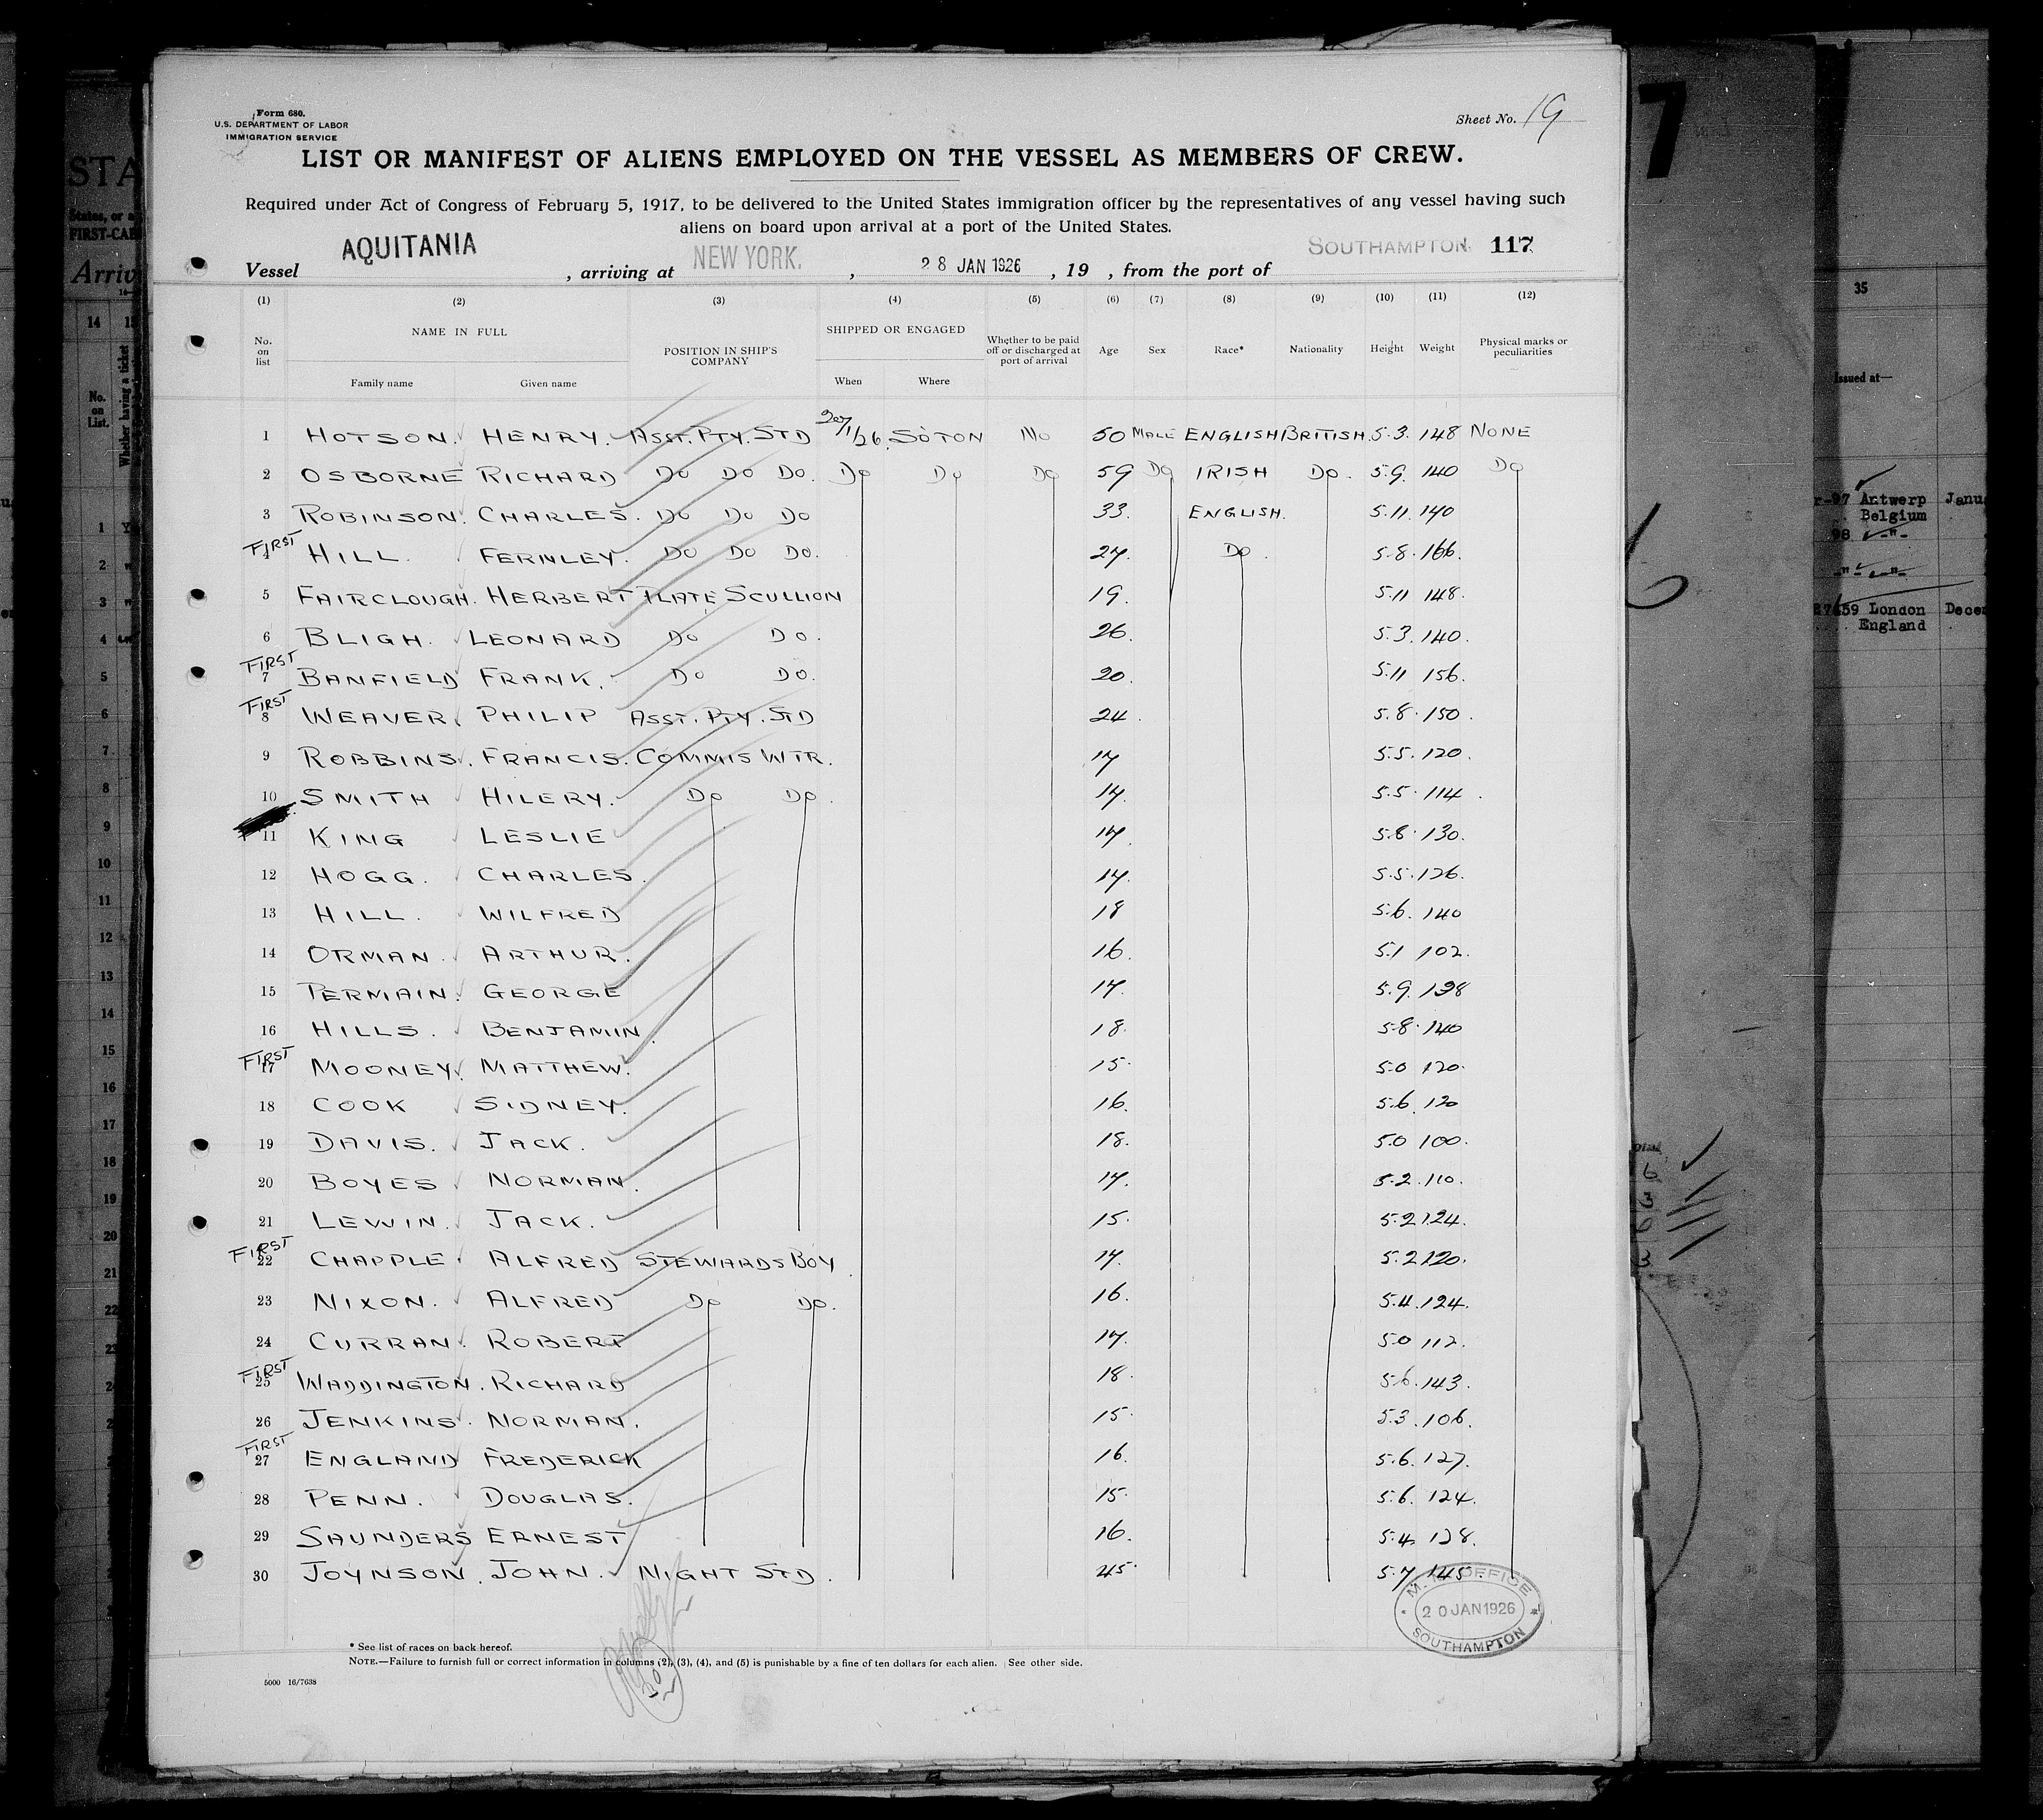 Form 680.
U.S. DEPARTMENT OF LABOR
IMMIGRATION SERVICE
Sheet No. 19
LIST OR MANIFEST OF ALIENS EMPLOYED ON THE VESSEL AS MEMBERS OF CREW.
Required under Act of Congress of February 5, 1917, to be delivered to the United States immigration officer by the representatives of any vessel having such
aliens on board upon arrival at a port of the United States.
Vessel AQUITANIA, arriving at NEW YORK., 28 JAN 1926, 19 , from the port of SOUTHAMPTON 117
(1) (2) (3) (4) (5) (6) (7) (8) (9) (10) (11) (12)
No. on list NAME IN FULL Family name Given name POSITION IN SHIP'S COMPANY SHIPPED OR ENGAGED When Where Whether to be paid off or discharged at port of arrival Age Sex Race* Nationality Height Weight Physical marks or peculiarities
1 HOTSON. HENRY. ASST. PTY. STD 20/1/26 SOTON NO 50 MALE ENGLISH BRITISH 5.3. 148 NONE
2 OSBORNE RICHARD DO DO DO. DO DO DO 59 DO IRISH DO. 5.9. 140 DO
3 ROBINSON. CHARLES. DO DO DO 33. ENGLISH. 5.11. 140
FIRST 4 HILL. FERNLEY. DO DO DO. 27. DO. 5.8. 166.
5 FAIRCLOUGH. HERBERT PLATE SCULLION 19. 5.11 148.
6 BLIGH. LEONARD DO DO. 26. 5.3. 140.
FIRST 7 BANFIELD FRANK. DO DO. 20. 5.11 156.
FIRST 8 WEAVER. PHILIP ASST. PTY. STD 24. 5.8. 150.
9 ROBBINS. FRANCIS. COMMIS WTR. 17 5.5. 120.
10 SMITH HILERY. DO DO. 17. 5.5. 114.
11 KING LESLIE 17. 5.8. 130.
12 HOGG. CHARLES. 17. 5.5. 126.
13 HILL. WILFRED 18 5.6. 140
14 ORMAN. ARTHUR. 16. 5.1 102.
15 PERMAIN. GEORGE 17. 5.9. 138
16 HILLS. BENJAMIN. 18. 5.8. 140
FIRST 17 MOONEY. MATTHEW. 15. 5.0 120.
18 COOK SIDNEY. 16. 5.6. 120
19 DAVIS. JACK. 18. 5.0 100.
20 BOYES NORMAN. 17. 5.2. 110.
21 LEWIN. JACK. 15. 5.2 124.
FIRST 22 CHAPPLE. ALFRED STEWARDS BOY. 17. 5.2 120.
23 NIXON. ALFRED DO DO. 16. 5.4. 124.
24 CURRAN. ROBERT 17. 5.0 112.
FIRST 25 WADDINGTON. RICHARD 18. 5.6. 143.
26 JENKINS. NORMAN. 15. 5.3. 106.
FIRST 27 ENGLAND FREDERICK 16. 5.6. 127.
28 PENN. DOUGLAS. 15. 5.6. 124.
29 SAUNDERS ERNEST 16. 5.4. 128.
30 JOYNSON. JOHN. NIGHT STD. 45. 5.7. 145.
M. M. OFFICE
20 JAN 1926
SOUTHAMPTON
* See list of races on back hereof.
NOTE.—Failure to furnish full or correct information in columns (2), (3), (4), and (5) is punishable by a fine of ten dollars for each alien. See other side.
5000 16/7638
STA
FIRST-CAB
Arriv
14
No. on List.
Whether having a ticket
7
35
Issued at—
Antwerp
Belgium
98
London
England